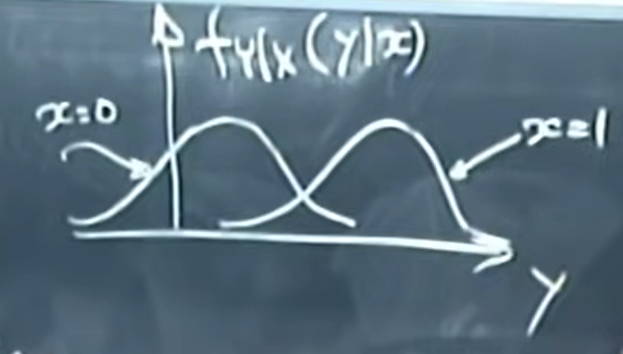 f_{Y|X}(y|x)
x=0
x=1
Y